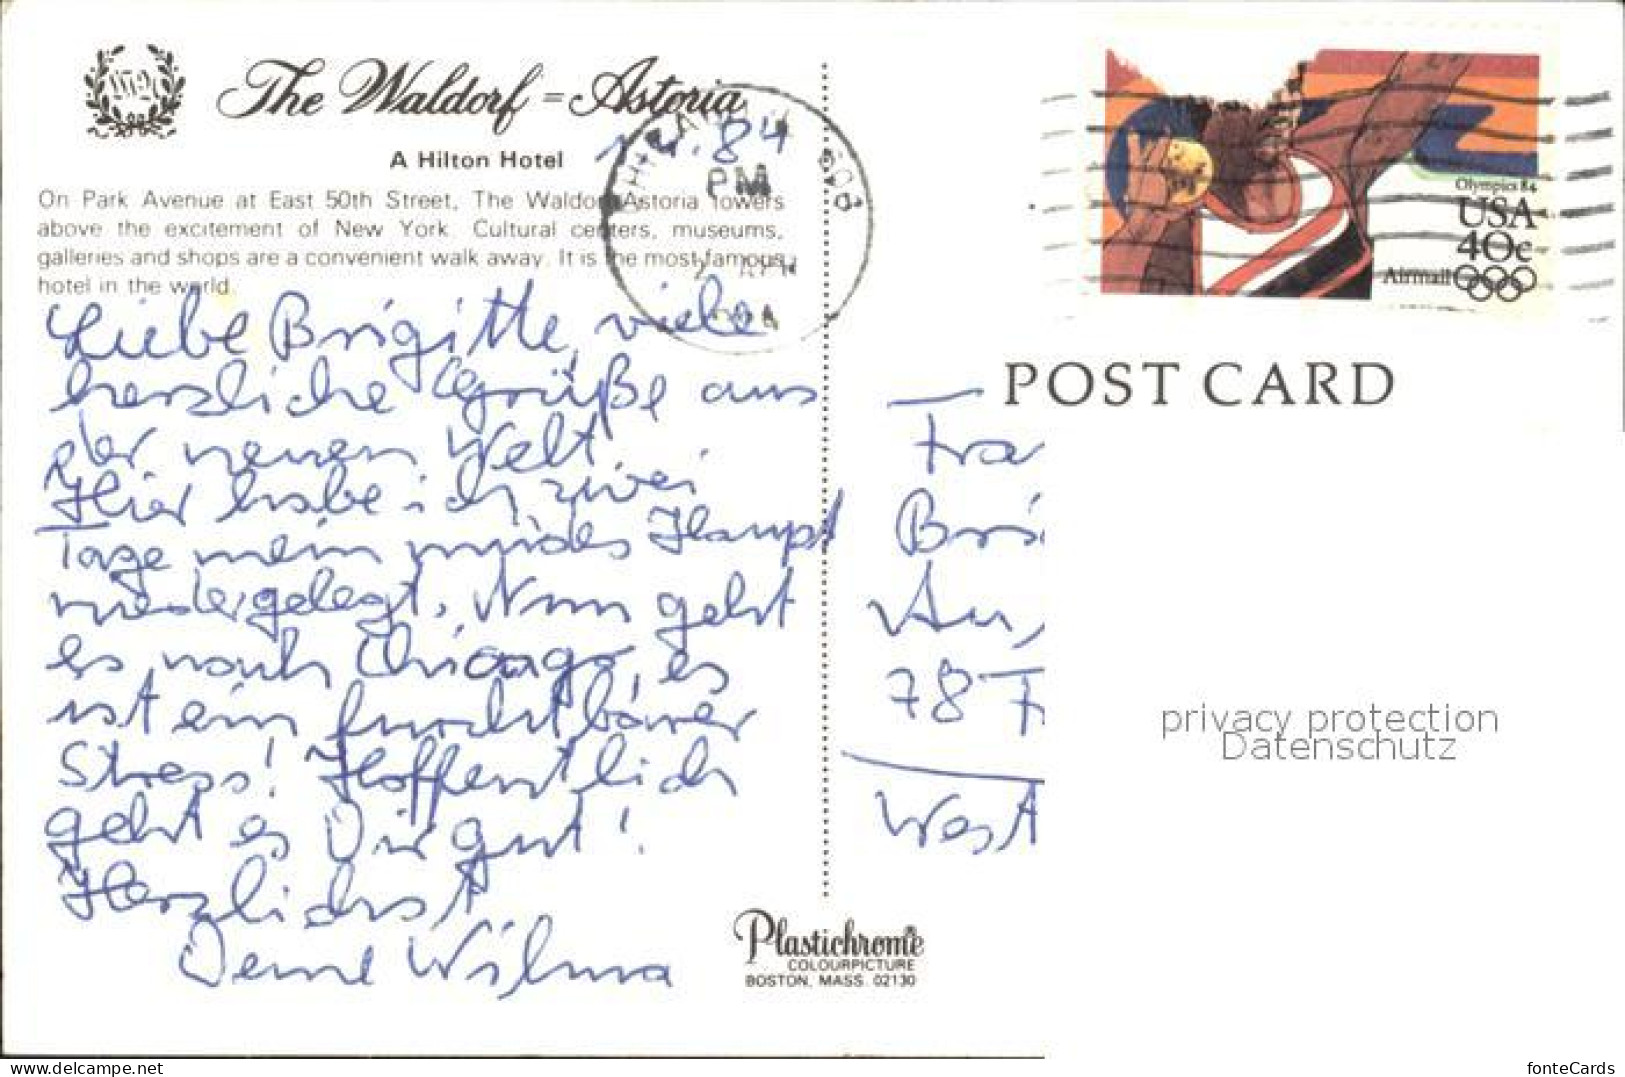 The Waldorf=Astoria
A Hilton Hotel
1.4.84
On Park Avenue at East 50th Street, The Waldorf-Astoria towers
above the excitement of New York. Cultural centers, museums,
galleries and shops are a convenient walk away. It is the most famous
hotel in the world.
PM
Olympics 84
USA
40c
Airmail
POST CARD
Liebe Brigitte, viele
herzliche Grüße aus
der neuen Welt
Hier habe ich zwei
Tage mein müdes Haupt
niedergelegt. Nun geht
es nach Chicago, es
ist ein furchtbarer
Stress! Hoffentlich
geht es Dir gut!
Herzlichst
Deine Wilma
Fra
Bri
An
78 F
West
privacy protection
Datenschutz
Plastichrome
COLOURPICTURE
BOSTON, MASS. 02130
www.delcampe.net
fonteCards